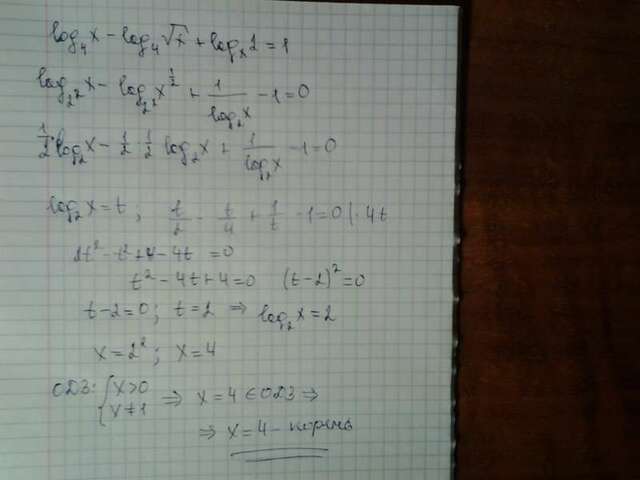 log₄x - log₄√x + logₓ2 = 1
log_{2²}x - log_{2²}x^{1/2} + 1/log₂x - 1 = 0
1/2 log₂x - 1/2 · 1/2 log₂x + 1/log₂x - 1 = 0
log₂x = t; t/2 - t/4 + 1/t - 1 = 0 |· 4t
2t² - t² + 4 - 4t = 0
t² - 4t + 4 = 0 (t - 2)² = 0
t - 2 = 0; t = 2 ⇒ log₂x = 2
x = 2²; x = 4
ОДЗ: { x > 0
x ≠ 1 ⇒ x = 4 ∈ ОДЗ ⇒
⇒ x = 4 - корень